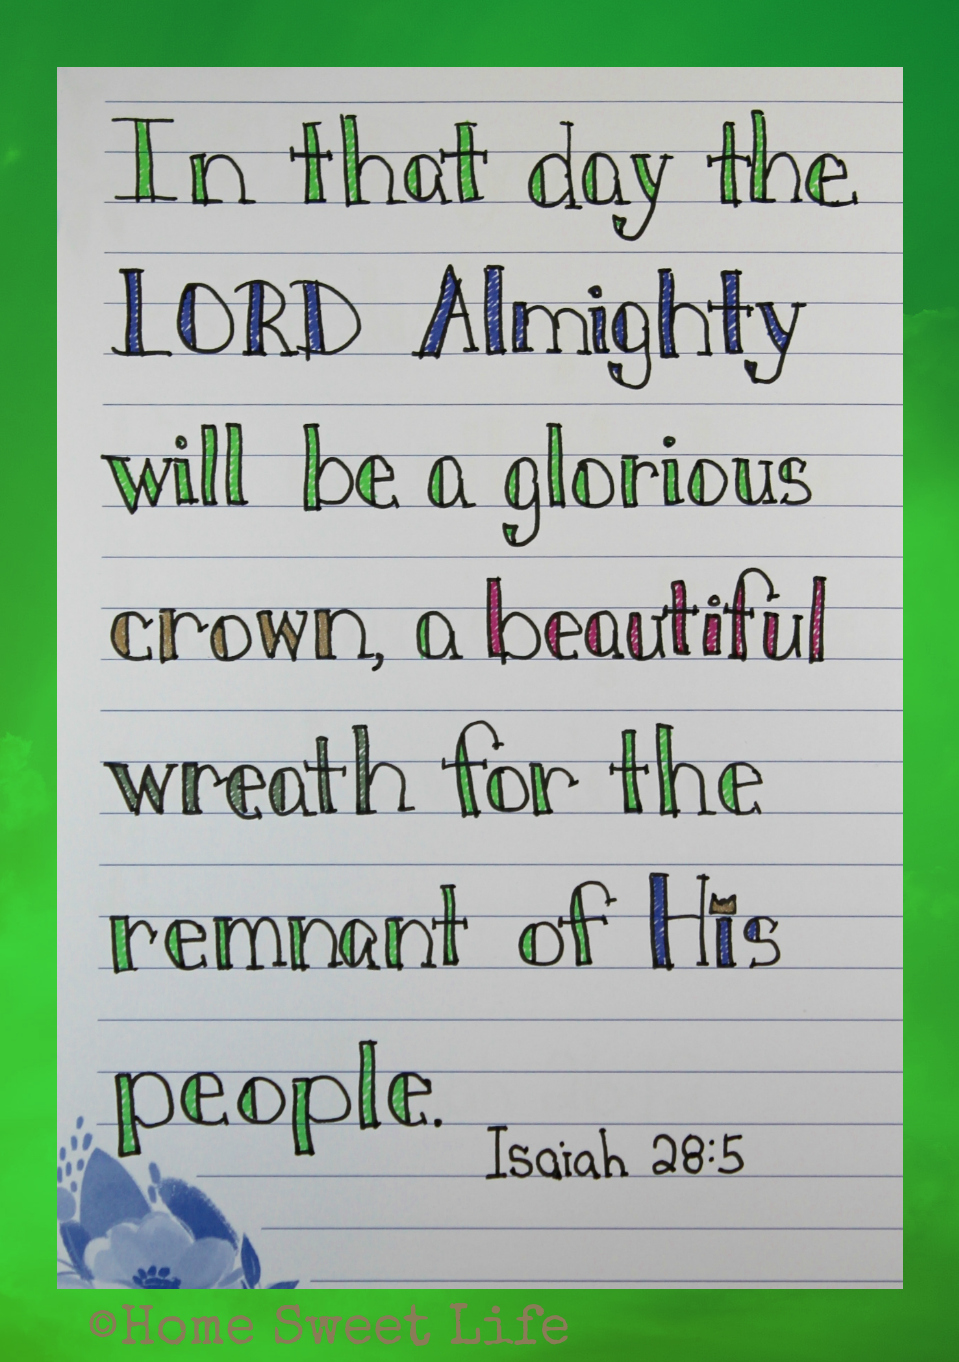 In that day the
LORD Almighty
will be a glorious
crown, a beautiful
wreath for the
remnant of His
people.
Isaiah 28:5
©Home Sweet Life